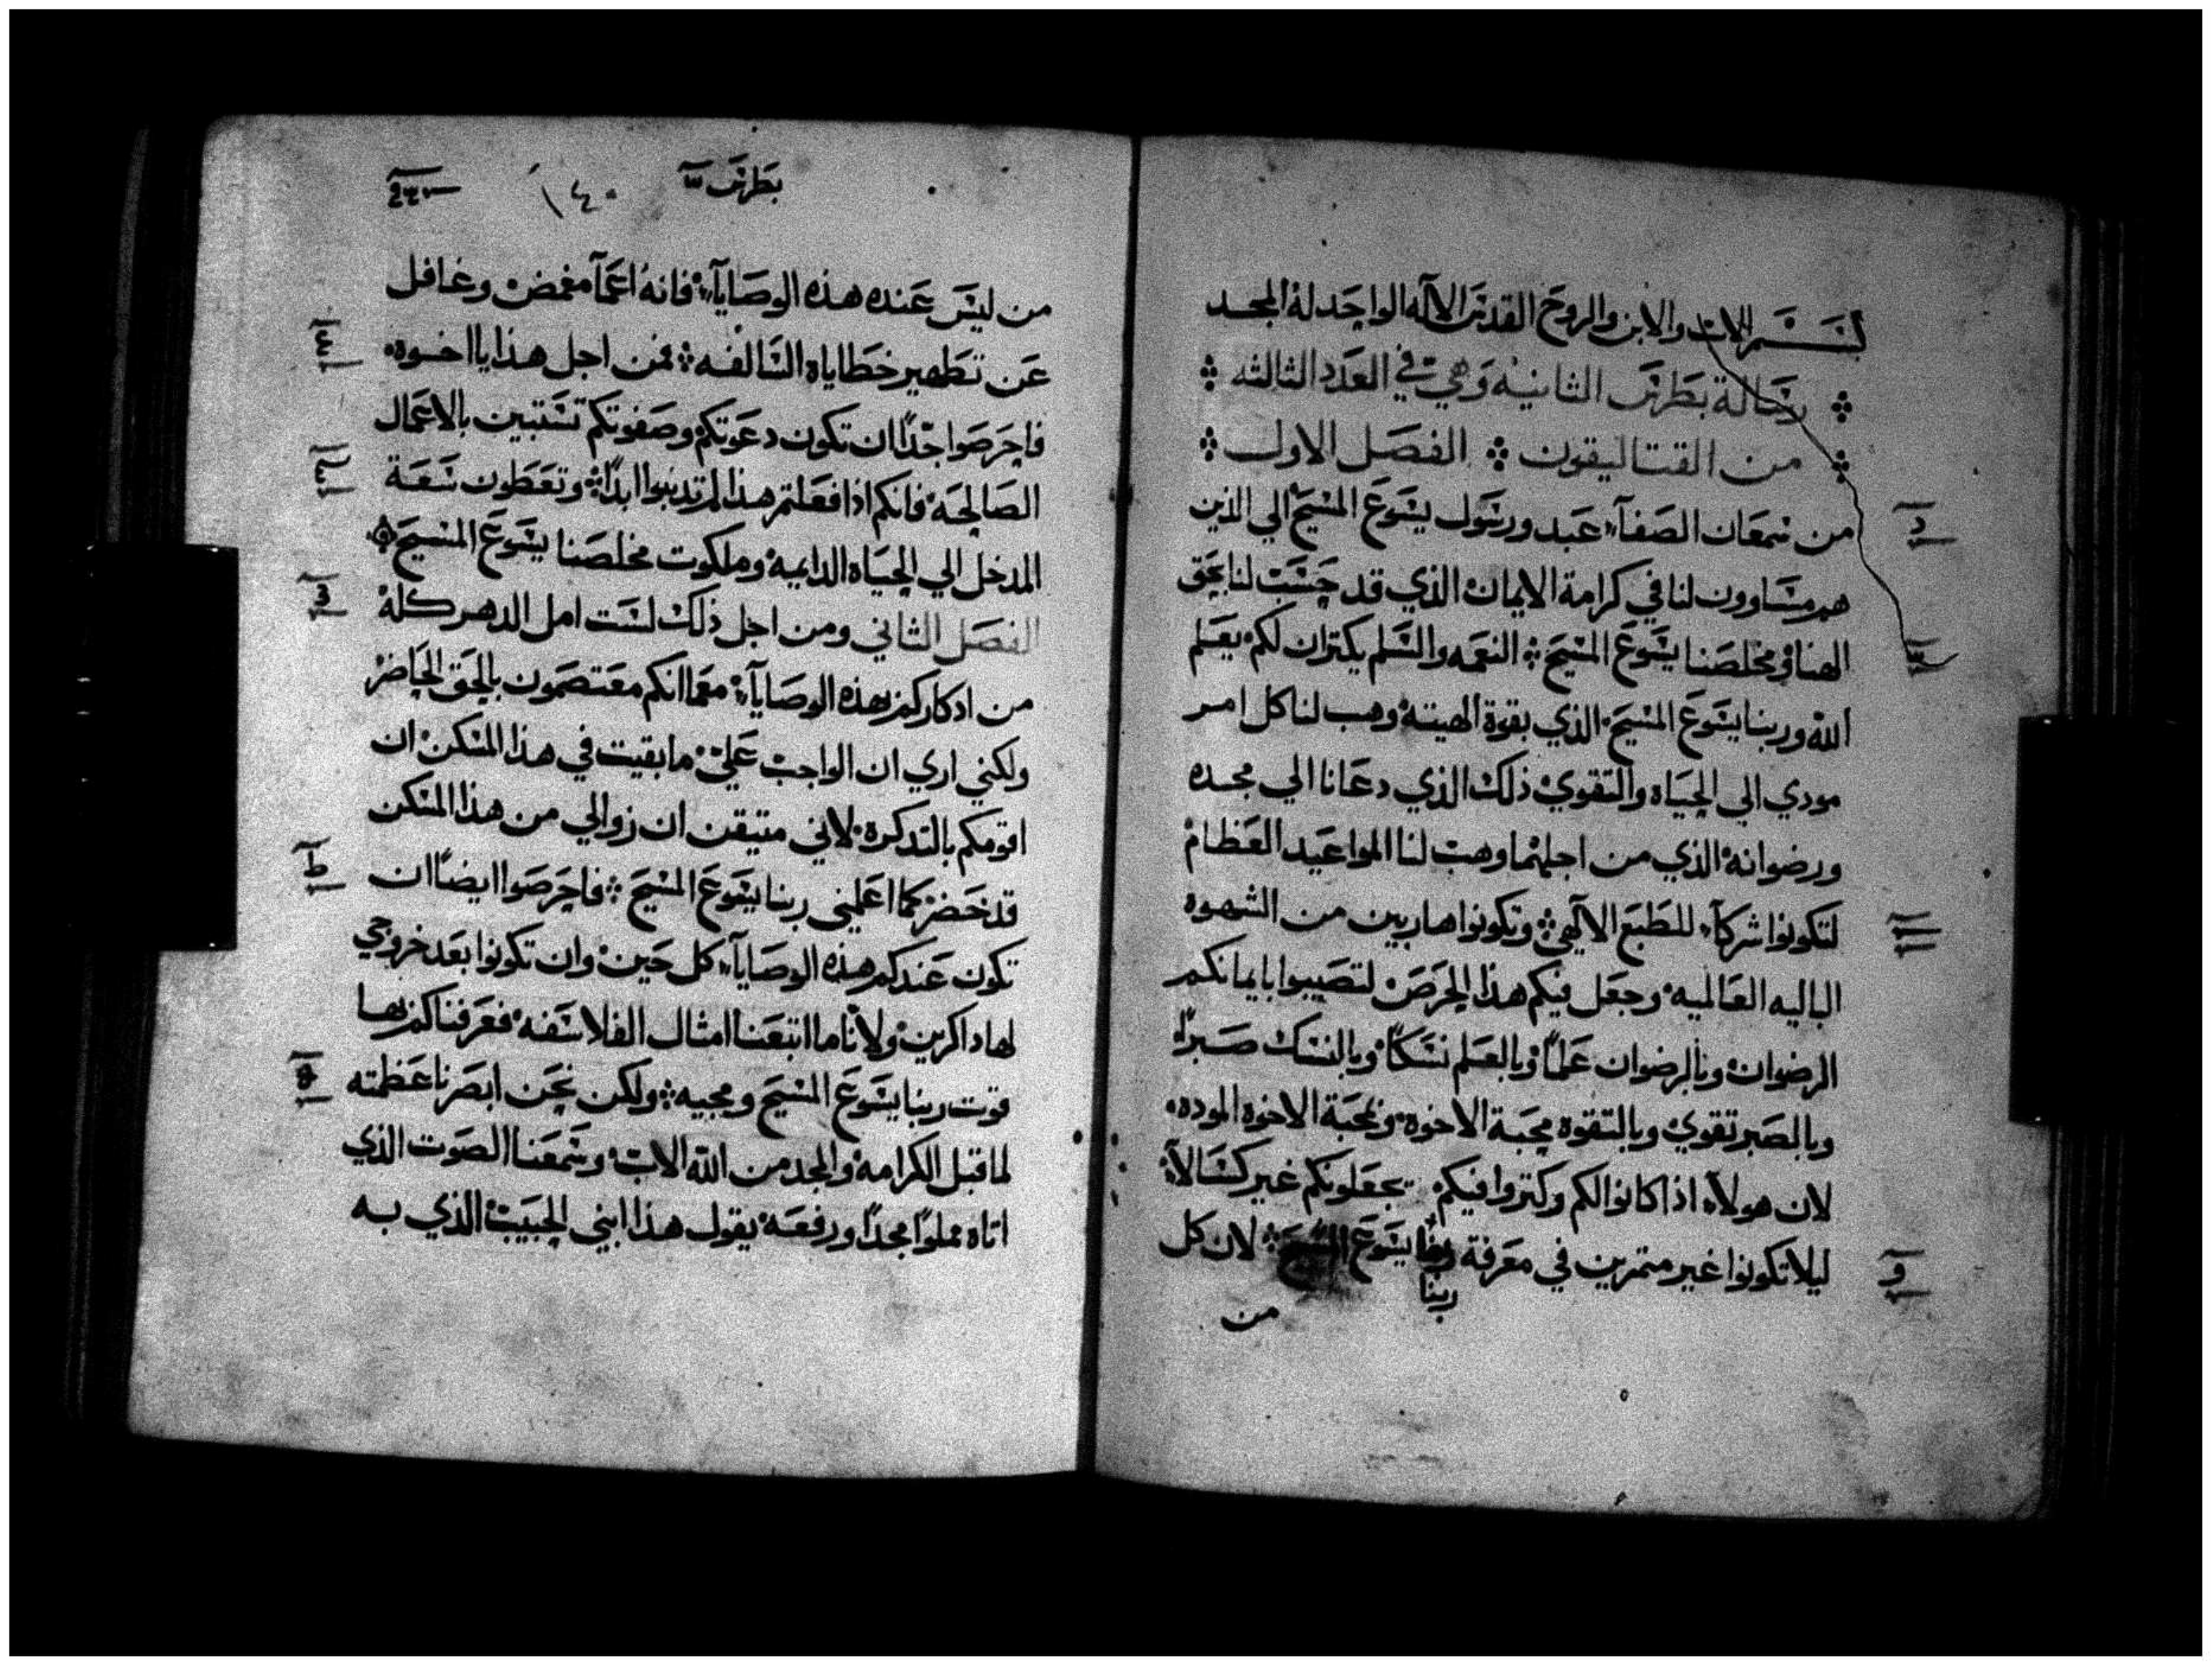 بسم الاب والابن والروح القدس الاله الواحد له المجد
رسالة بطرس الثانيه وهي في العدد الثالثه
من القتاليقون الفصل الاول
من سمعان الصفآ عبد ورسول يسوع المسيح الي الذين
هم متساوون لنا في كرامة الايمان الذي قد حسبت لنا بحق
الهنا ومخلصنا يسوع المسيح النعمه والسلم يكتران لكم بعلم
الله وربنا يسوع المسيح الذي بقوة الهيته وهب لنا كل امر
مودي الي الحياه والتقوي ذلك الذي دعانا الي مجده
ورضوانه الذي من اجلهما وهب لنا المواعيد العظام
لتكونوا شركآ للطبع الالهي وتكونوا هاربين من الشهوه
الباليه العالميه وجعل فيكم هذا الحرص لتصيبوا بايمانكم
الرضوان وبالرضوان علماً وبالعلم نسكاً وبالنسك صبراً
وبالصبر تقوي وبالتقوه محبة الاخوه وبمحبة الاخوه الموده
لان هولآ اذا كانوا لكم وكتروا فيكم تجعلونكم غير كسالآ
ليلا تكونوا غير متمرين في معرفة ربنا يسوع المسيح لان كل
ربنا
من
بطرس ١٤٠
من ليس عنده هذه الوصايآ فانه اعمآ مغمض وغافل
عن تطهير خطاياه السالفه فمن اجل هذا يا اخوه
فاحرصوا جداً ان تكون دعوتكم وصفوتكم تستبين بالاعمال
الصالحه فانكم اذا فعلتم هذا لم تدنبوا ابداً وتعطون سعة
المدخل الي الحياه الدايمه وملكوت مخلصنا يسوع المسيح
الفصل الثاني ومن اجل ذلك لست امل الدهر كله
من ادكاركم بهذه الوصايآ مع ما انكم معتصمون بالحق الحاضر
ولكني اري ان الواجب علي ما بقيت في هذا المسكن ان
اقومكم بالتدكرة لاني متيقن ان زوالي من هذا المسكن
قد حضر كما اعلمني ربنا يسوع المسيح فاحرصوا ايضاً ان
تكون عندكم هذه الوصايآ كل حين وان تكونوا بعد خروجي
لها داكرين ولانا ما اتبعنا امثال الفلاسفه فعرفناكم بها
قوت ربنا يسوع المسيح ومجيه ولكن نحن ابصرنا عظمته
لما قبل الكرامه والمجد من الله الاب وسمعنا الصوت الذي
اتاه مملوا مجداً ورفعه يقول هذا ابني الحبيب الذي به